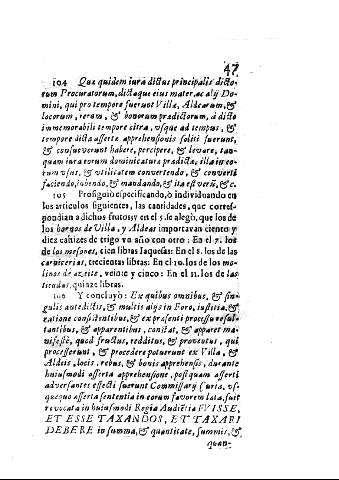 47
104 Quæ quidem iura dictus principalis dicto-
rum Procuratorum, dictaque eius mater, ac alij Do-
mini, qui pro tempore fuerunt Villæ, Aldearum, &
locorum, rerum, & bonorum prædictorum, à dicto
immemorabili tempore citra, vsque ad tempus, &
tempore dictæ assertæ apprehensionis soliti fuerunt,
& consueuerunt habere, percipere, & leuare, tan-
quam iura eorum dominicatura prædicta: illa in eo-
rum vsus, & vtilitatem convertendo, & converti
faciendo, iubendo, & mandando, & ita est verũ, & c.
105 Prosiguiò especificando, ò individuando en
los articulos siguientes, las cantidades, que corres-
pondian a dichos frutos; y en el 5. se alegò, que los de
los hornos de Villa, y Aldeas importavan ciento y
diez cahizes de trigo vn año con otro: En el 7. los
de los mesones, cien libras Iaquesas: En el 8. los de las
carnicerias, trecientas libras: En el 10. los de los mo-
linos de azeite, veinte y cinco: En el 11. los de las
tiendas, quinze libras.
106 Y concluyò: Ex quibus omnibus, & sin-
gulis antedictis, & multis alijs in Foro, iustitia, &
ratione consistentibus, & ex præsenti processu resul-
tantibus, & apparentibus, constat, & apparet ma-
nifestè, quod fructus, redditus, & proventus, qui
processerunt, & procedere potuerunt ex Villa, &
Aldeis, locis, rebus, & bonis apprehensis, durante
huiusmodi asserta apprehensione, postquam asserti
adversantes effecti fuerunt Commissarij Curtæ, vs-
quequo asserta sententia in eorum favorem lata, fuit
revocata in huiusmodi Regia Audiẽtia FVISSE,
ET ESSE TAXANDOS, ET TAXARI
DEBERE in summa, & quantitate, summis, &
quan-